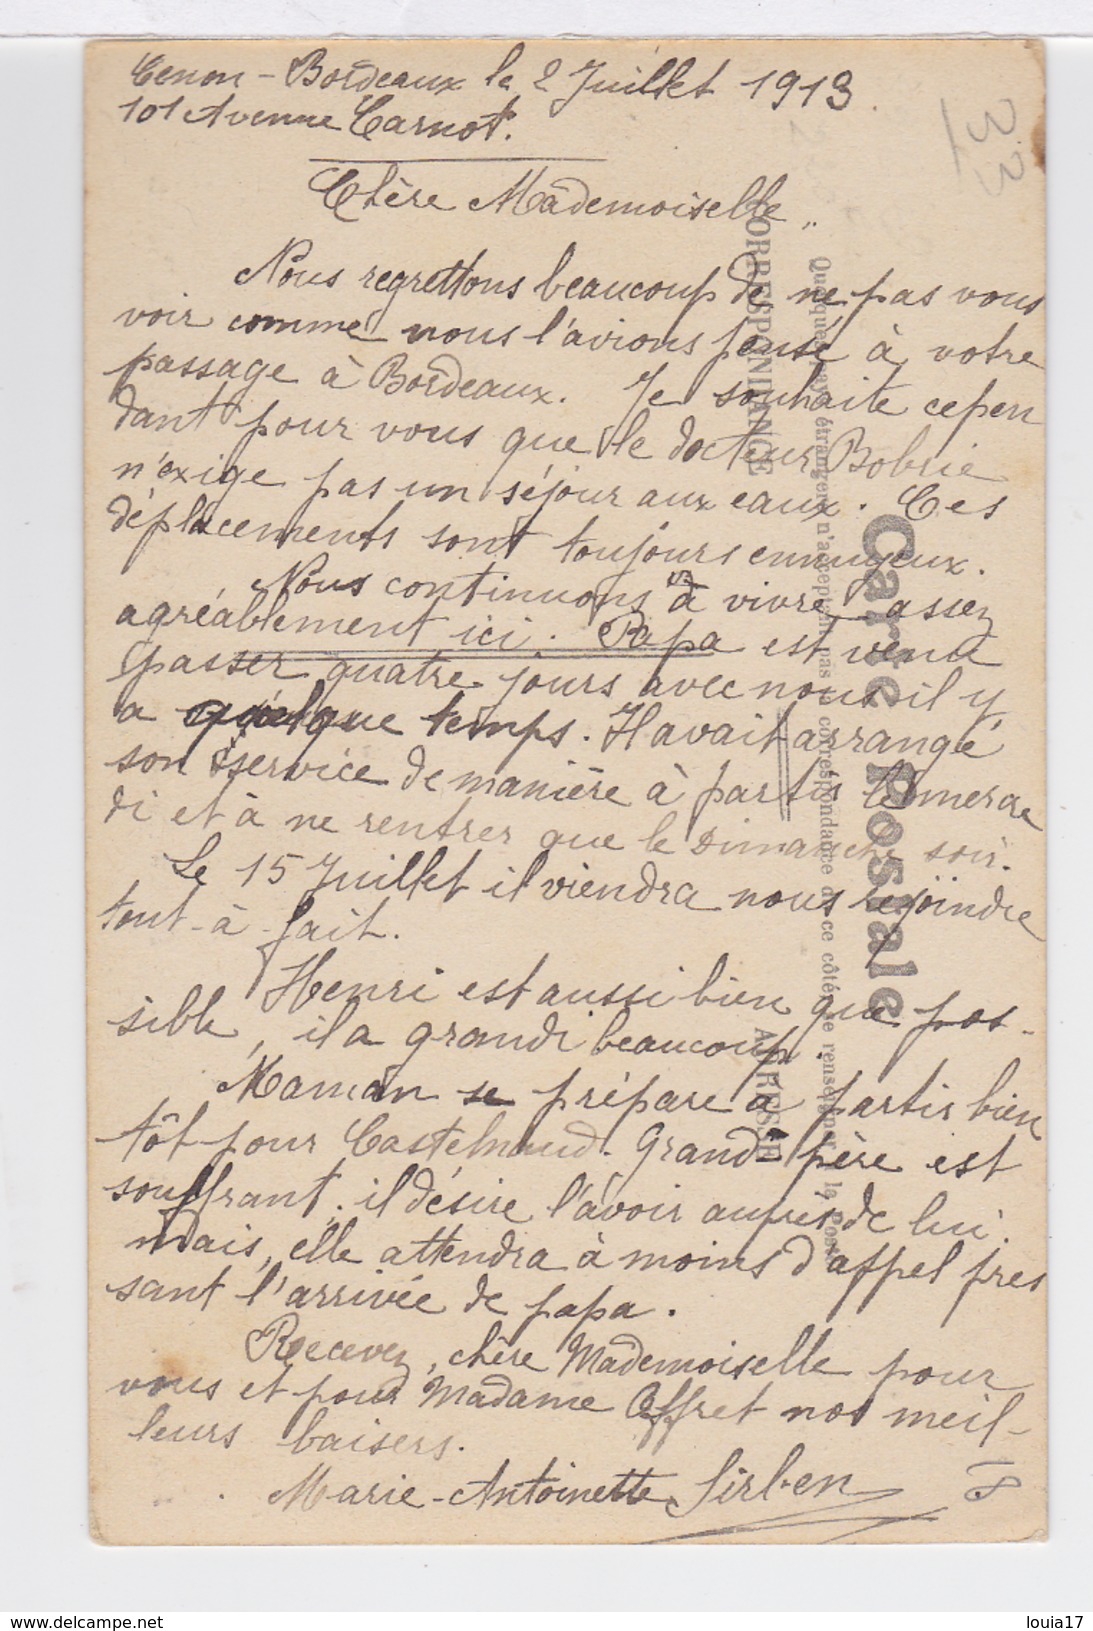 Cenon - Bordeaux le 2 Juillet 1913
101 Avenue Carnot.
Chère Mademoiselle,
Nous regrettons beaucoup de ne pas vous
voir comme nous l'avions pensé à votre
passage à Bordeaux. Je souhaite cepen
dant pour vous que le docteur
n'exige pas un séjour aux eaux. Ces
déplacements sont toujours ennuyeux.
Nous continuons à vivre assez
agréablement ici. Papa est venu
passer quatre jours avec nous il y
a quelque temps. Il avait arrangé
son service de manière à partir le mercre
di et à ne rentrer que le Dimanche soir.
Le 15 Juillet il viendra nous rejoindre
tout-à-fait.
Henri est aussi bien que pos-
sible, il a grandi beaucoup
Maman se prépare à partir bien
tôt pour Castelnaud. Grand-père est
souffrant; il désire l'avoir auprès de lui.
mais, elle attendra à moins d'appel pres
sant l'arrivée de papa.
Recevez, chère Mademoiselle pour
vous et pour Madame Offret nos meil-
leurs baisers.
Marie-Antoinette Sirben
Carte Postale
Quelques pays étrangers n'acceptent pas la correspondance de ce côté, se renseigner à la Poste
CORRESPONDANCE
ADRESSE
33
18
delcampe.net
louia17